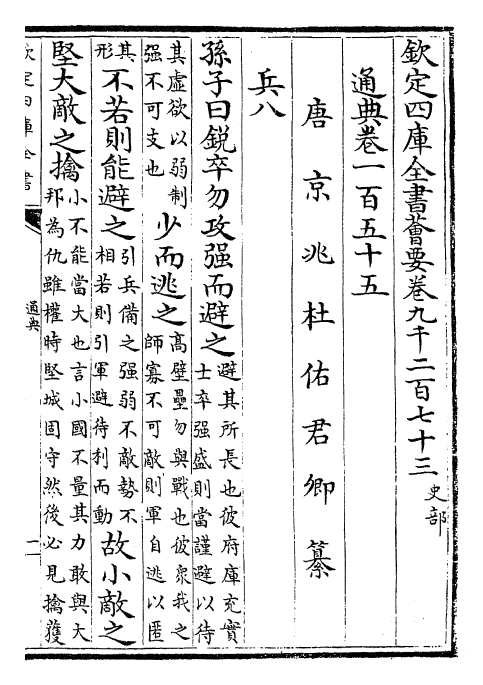 欽定四庫全書薈要卷九千二百七十三史部
通典卷一百五十五
唐京兆杜佑君卿纂
兵八
孫子曰鋭卒勿攻强而避之避其所長也彼府庫充實士卒强盛則當謹避以待
其虛欲以弱制强不可支也少而逃之高壁壘勿與戰也彼衆我之師寡不可敵則軍自逃以匿
其形不若則能避之引兵備之强弱不敵勢不相若則引軍避待利而動故小敵之
堅大敵之擒小不能當大也言小國不量其力敢與大邦為仇雖權時堅城固守然後必見擒獲
欽定四庫全書
通典
一